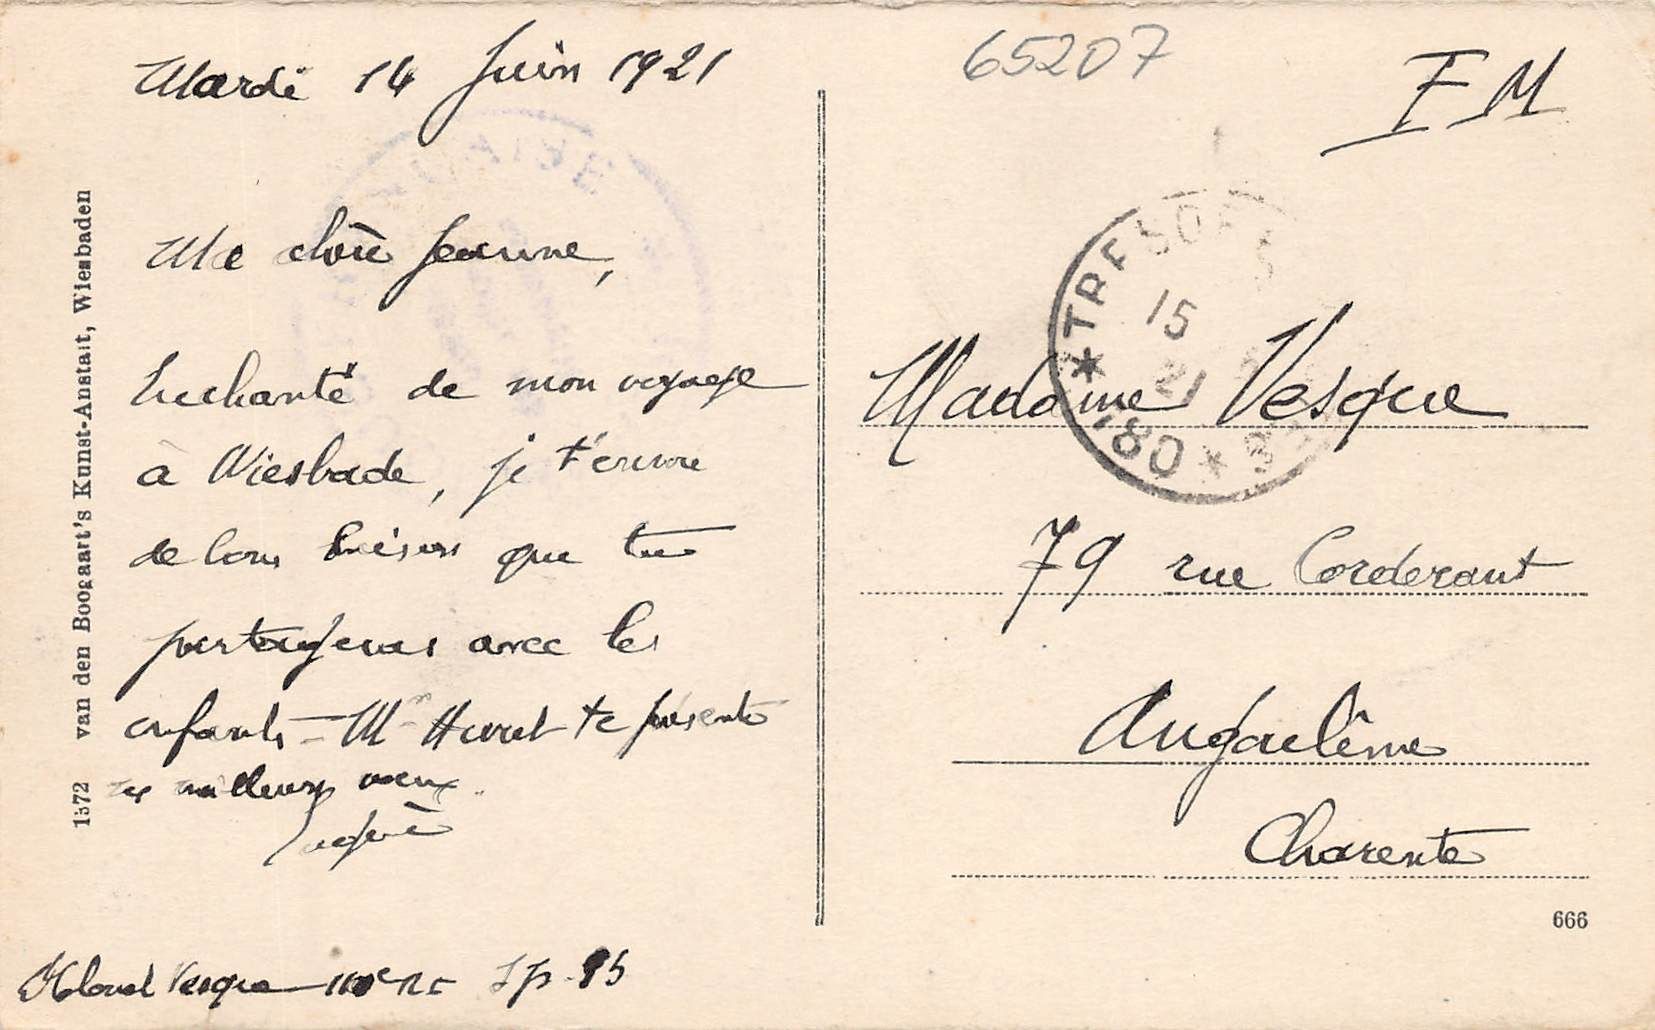 Mardi 14 Juin 1921
65207
F M
Ma chère Jeanne,
Enchanté de mon voyage
à Wiesbade, je t'envoie
de bons baisers que tu
partageras avec les
enfants - Mr Hurel te présente
ses meilleurs vœux.
Vesque 11
S P. 95
TRESOR
15
21
*180*
Madame Vesque
79 rue Corderant
Angoulême
Charente
666
1572 van den Boogaart's Kunst-Anstalt, Wiesbaden